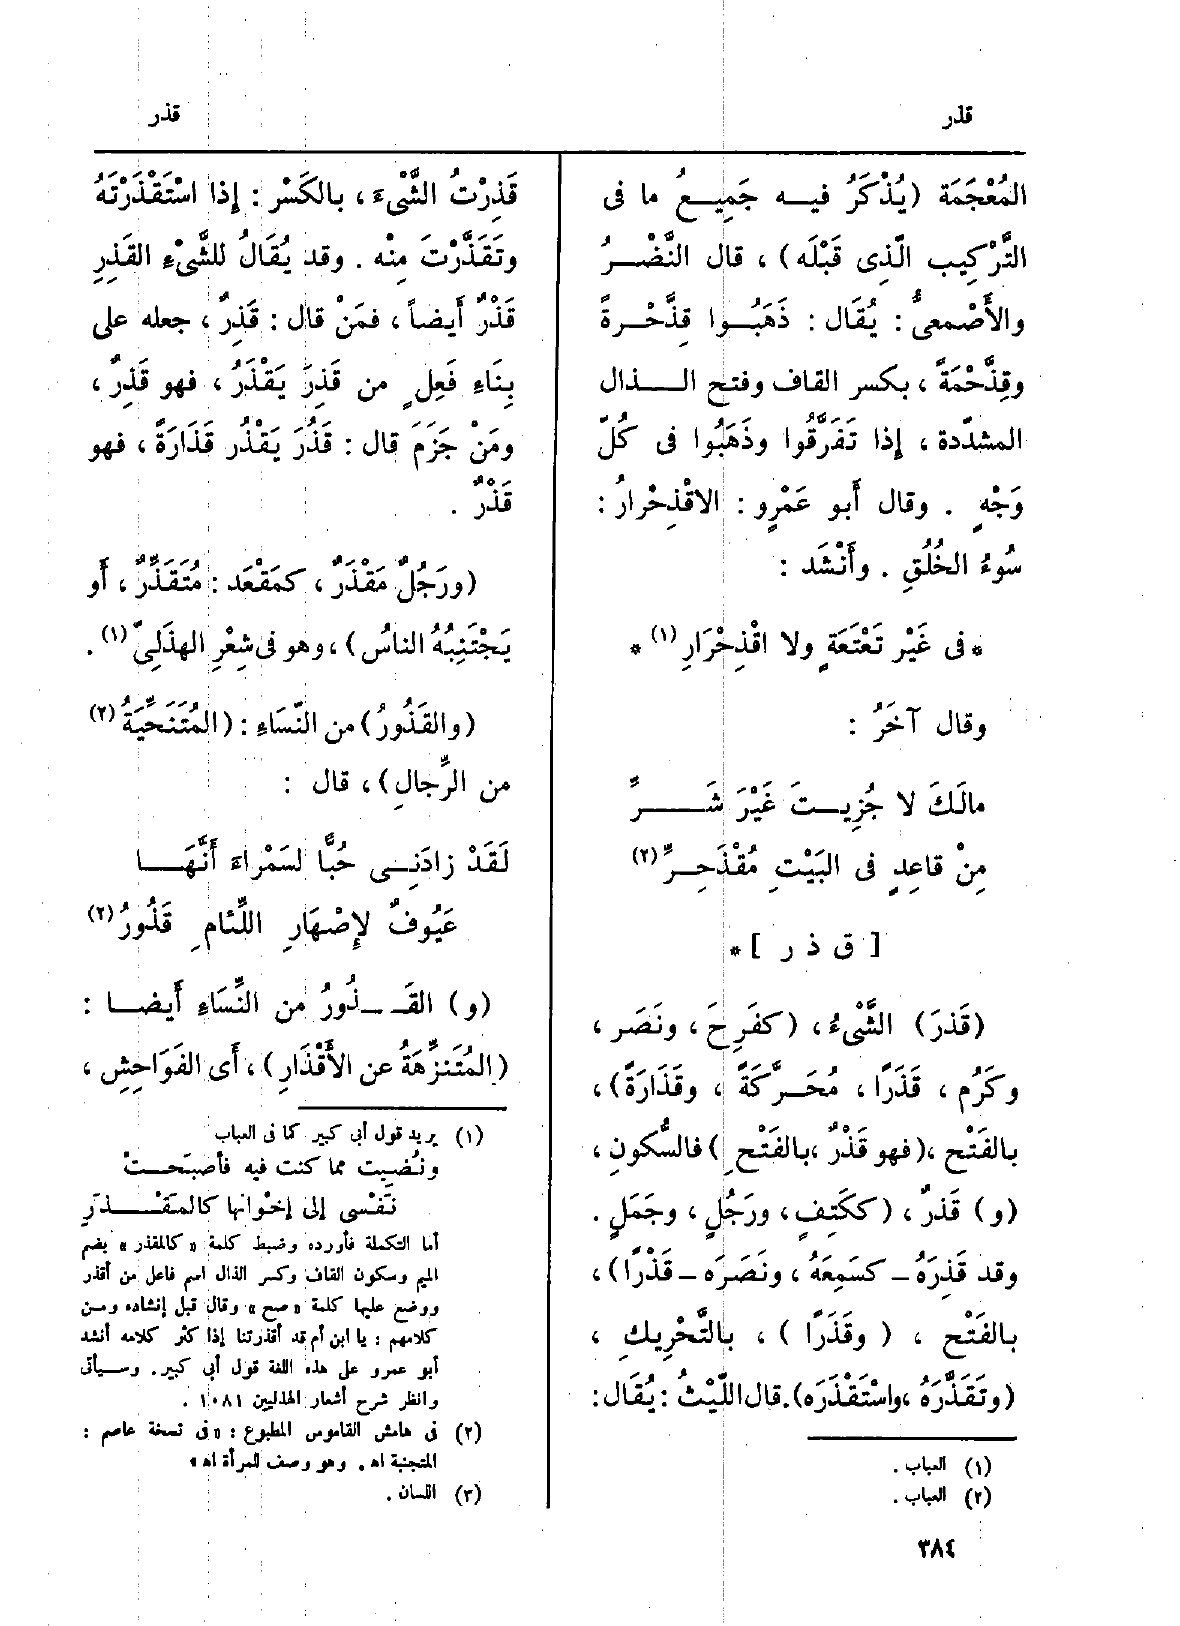 قذر
قذر
المُعْجَمَة (يُذْكَرُ فيــه جَمِيــعُ ما فى
التَّرْكِيب الَّذِى قَبْلَه) ، قال النَّضْــرُ
والأَصْمعىُّ : يُقَال : ذَهَبُــوا قِذَّحْرةً
وقِذَّحْمَةً ، بكسر القاف وفتح الــذال
المشدّدة ، إِذا تَفَرَّقُوا وذَهَبُوا فى كُلّ
وَجْهٍ . وقال أَبو عَمْرٍو : الاقْذِحْرارُ :
سُوءُ الخُلُقِ . وأَنْشَد :
* فى غَيْر تَعْتَعَةٍ ولا اقْذِحْرَارِ (١) *
وقال آخَرُ :
مالَكَ لا جُزِيــتَ غَيْرَ شَــــرٍّ
مِنْ قاعِدٍ فى البَيْتِ مُقْذَحِــرِّ (٢)
[ ق ذ ر ] *
(قَذَرَ) الشَّىْءُ ، (كفَرِحَ ، ونَصَر ،
وكَرُم ، قَذَرًا ، مُحَــرَّكَةً ، وقَذَارَةً) ،
بالفَتْح ، (فهو قَذْرٌ ، بالفَتْحِ ) فالسُّكُونِ ،
(و) قَذرٌ ، (ككَتِفٍ ، ورَجُلٍ ، وجَمَلٍ .
وقد قَذِرَهُ ــ كسَمِعَهُ ، ونَصَرَه ــ قَذْرًا) ،
بالفَتْح ، ( وقَذَرًا ) ، بالتَّحْرِيكِ ،
(وتَقَذَّرَهُ ، واسْتَقْذَره) . قال اللَّيْثُ : يُقَال :
(١) العباب .
(٢) العباب .
٣٨٤
قَذِرْتُ الشَّىْءَ ، بالكَسْر : إِذا اسْتَقْذَرْتَهُ
وتَقَذَّرْتَ مِنْه . وقد يُقَالُ للشَّىْءِ القَذِرِ
قَذْرٌ أَيضاً ، فمَنْ قال : قَذِرٌ ، جعله على
بِنَاءِ فَعِلٍ من قَذِرَ يَقْذَرُ ، فهو قَذِرٌ ،
ومَنْ جَزَمَ قال : قَذُرَ يَقْذُر قَذَارَةً ، فهو
قَذْرٌ .
(ورَجُلٌ مَقْذَرٌ ، كمَقْعَد : مُتَقَذَّرٌ ، أَو
يَجْتَنِبُهُ الناسُ) ، وهو فى شِعْرِ الهذَلِىّ (١) .
(والقَذُورُ) من النّسَاءِ : (المُتَنَحِّيَةُ (٢)
من الرِّجالِ) ، قال :
لَقَدْ زادَنِــى حُبًّا لسَمْراءَ أَنَّهَــا
عَيُوفٌ لإِصْهَارِ اللِّئامِ قَذُورُ (٢)
(و) القَــذُورُ من النِّسَاءِ أَيضــا :
(المُتَنزِّهَةُ عن الأَقْذَارِ) ، أَى الفَوَاحِشِ ،
(١) يريد قول أبى كبير كما فى العباب
ونُضِيت مما كنت فيه فأصبَحــتْ
نَفْسى إلى إخْوانِها كالمَقْــذَرِ
أما التكملة فأورده وضبط كلمة « كالمقذر » بضم
الميم وسكون القاف وكسر الذال اسم فاعل من أقذر
ووضع عليها كلمة « صح » وقال قبل إنشاده ومــن
كلامهم : يا ابن أم قد أقذرتنا إذا كثر كلامه أنشد
أبو عمرو على هذه اللغة قول أبى كبير . وسيأتى
وانظر شرح أشعار الهذليين ١٠٨١ .
(٢) فى هامش القاموس المطبوع : « فى نسخة عاصم :
المتجنبة اه . وهو وصف للمرأة اه »
(٣) اللسان .